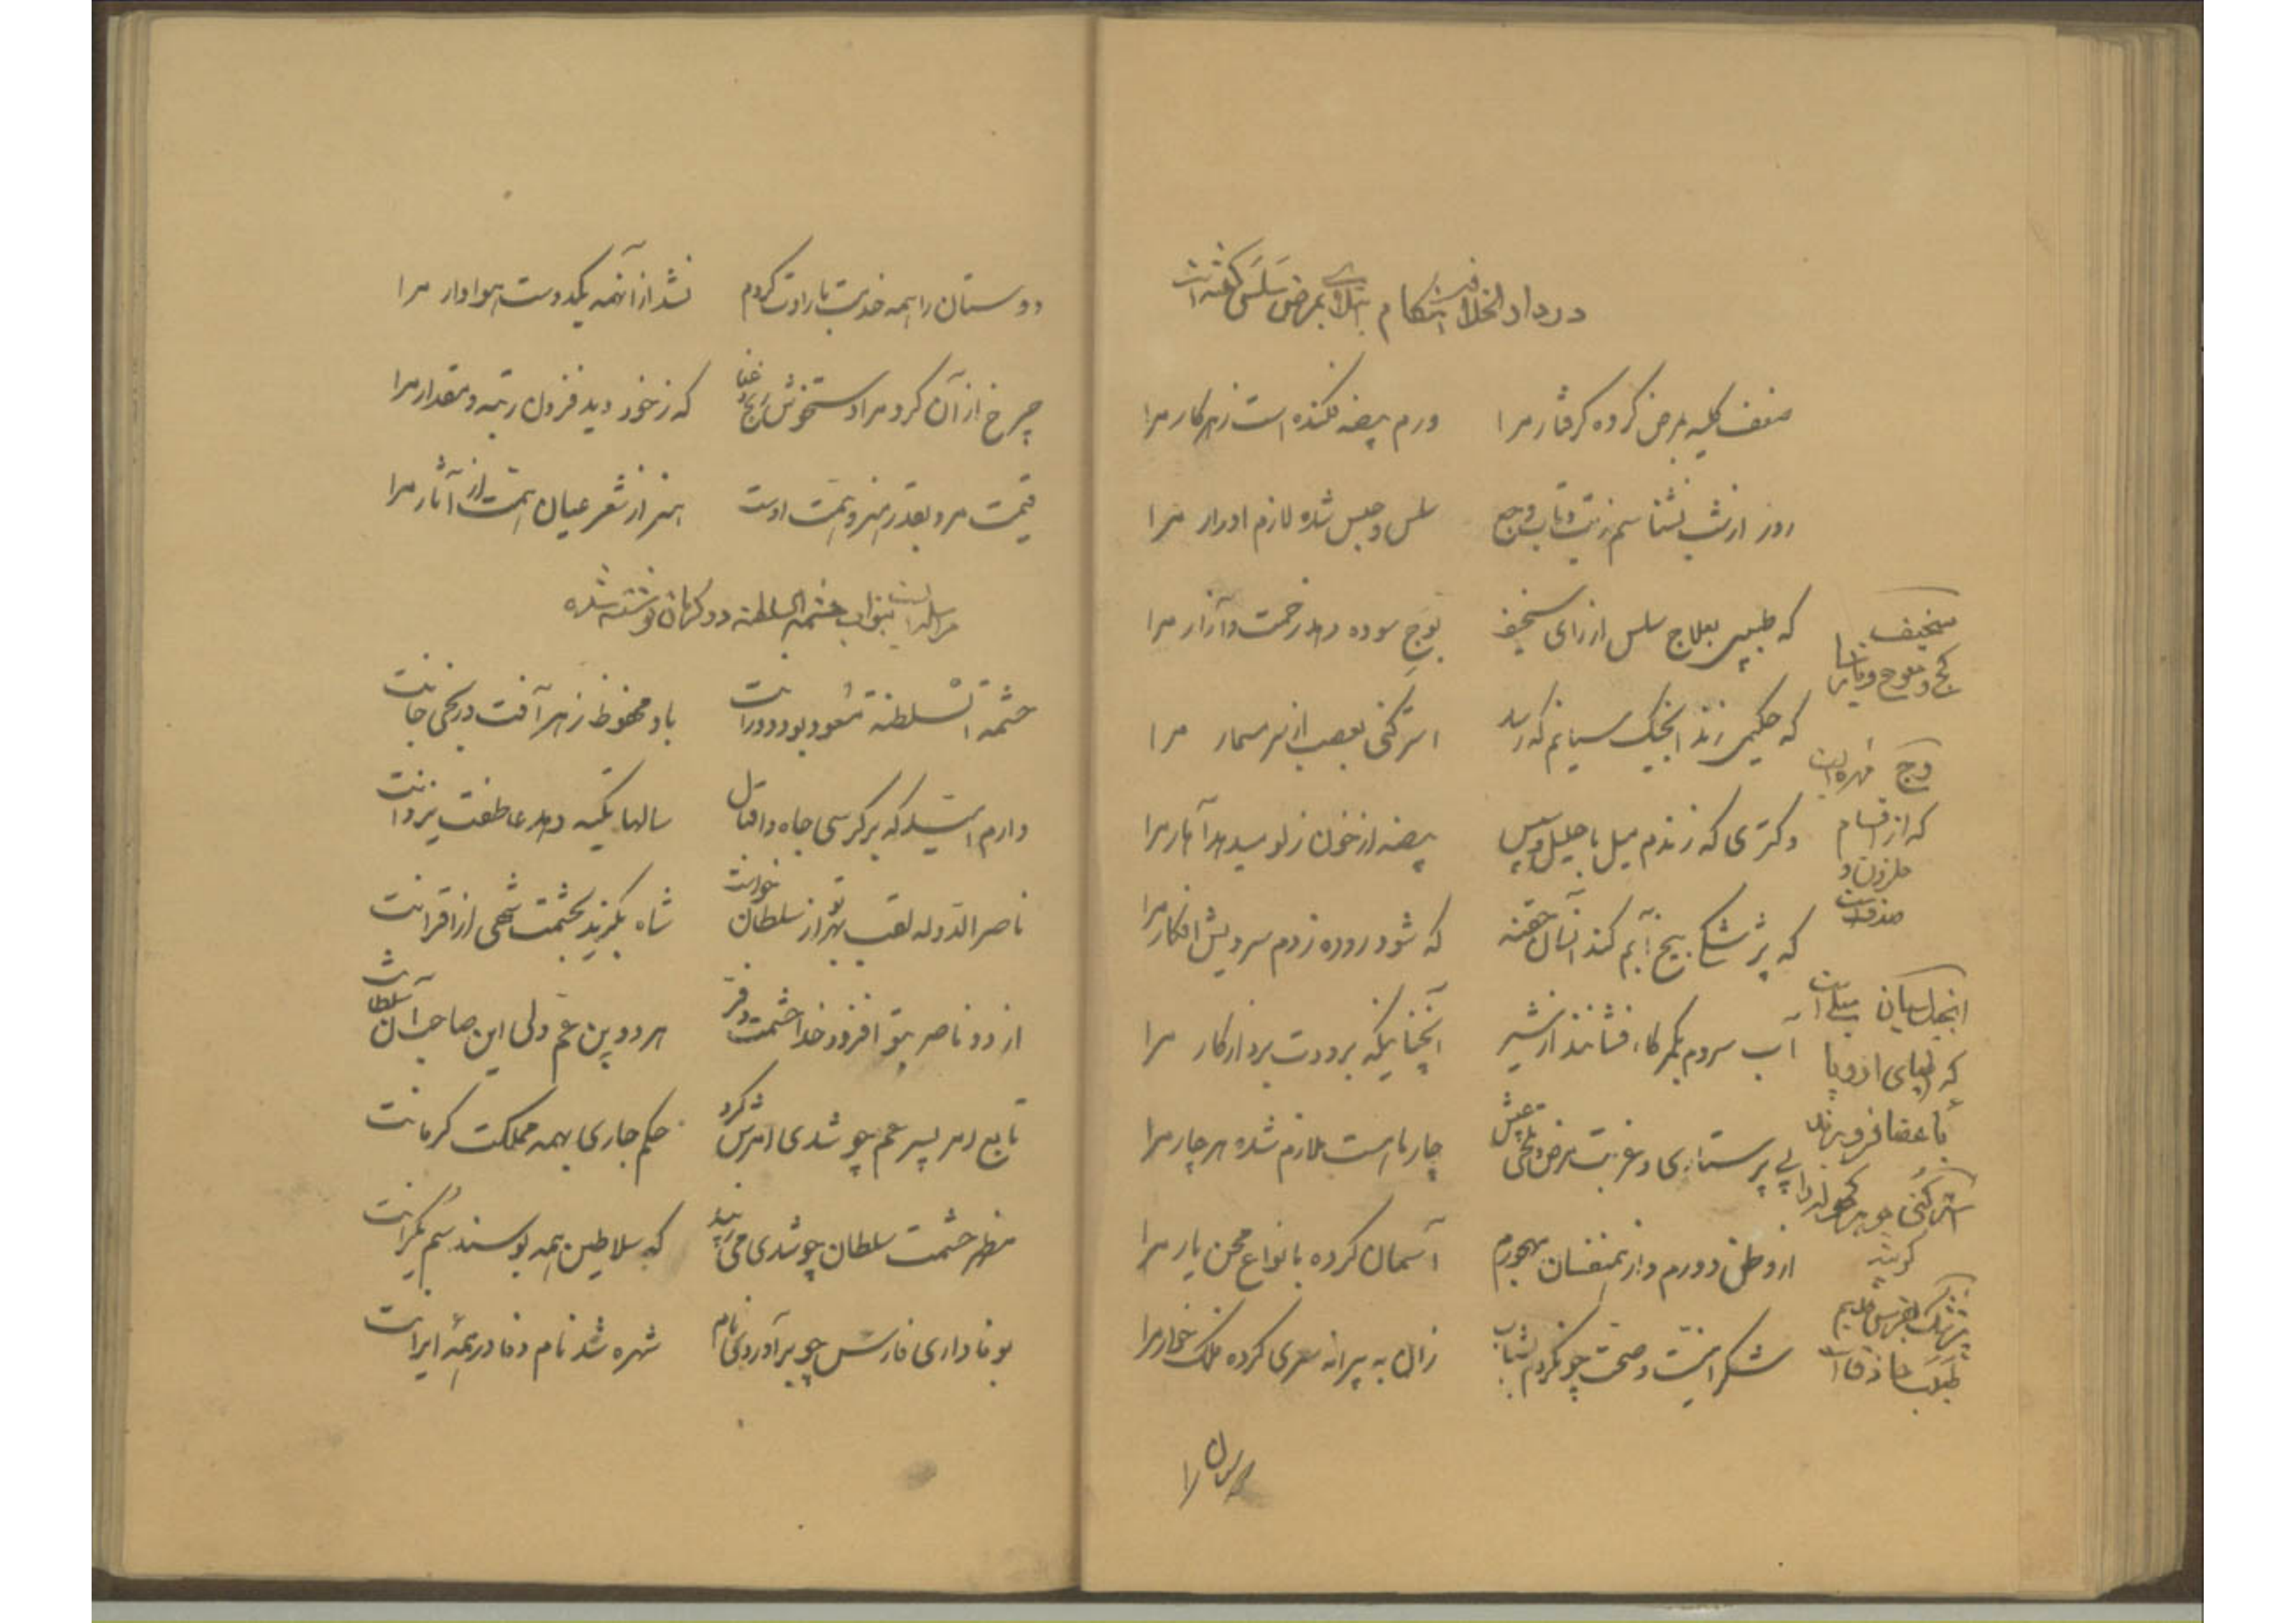 در دارالخلافه هنگام ابتلای بمرض سلس گفته است
ضعف کلیه بمرض کرده گرفتار مرا ورم بیضه فکنده است ز هر کار مرا
روز از شب نشناسم ز تب و تاب وجع سلس و حبس شده لازم ادرار مرا
که طبیبی بعلاج سلس از رای سخیف بوج سوده دهد زحمت و آزار مرا
که حکیمی زند انجکسیانم که رسد استرکنی بعصب از سر مسمار مرا
دکتری که زندم میل باحلیل و سپس بیضه از خون زلو میدهد آهار مرا
که پزشکی بیخ آبم کند آنسان حقنه که شود روده ز دم سرد پس افکار مرا
آب سردم بکمرگاه فشانند از شیر آنچنانیکه برودت برد از کار مرا
بی پرستاری و غربت مرض و تلخی عیش چار تا است ملازم شده هر چار مرا
از وطن دورم و از همنفسان مهجورم آسمان کرده بانواع محن یار مرا
شکر امنیت و صحت چو نکردم بشباب زان به پیرانه سری کرده فلک خوار مرا
سخیف
کج و معوج و
وج مهره ایست
که از اقسام
حلزون و
صدفست
انجکسیان میلی است
که اطبای اروپا
باعضا فرو برند
استرکنی جوهر کچوله را
گویند
پزشک بفرس قدیم
طبیب حاذق است
دوستان را همه خدمت بارادت کردم نشد از آنهمه یکدوست هوادار مرا
چرخ از آن کرد مرا دستخوش رنج و عنا که ز خود دید فزون رتبه و مقدار مرا
قیمت مرد بقدر هنر و همت اوست هنر از شعر عیان همت از آثار مرا
مراسله ایست بنواب حشمة السلطنه در کرمان نوشته شده
حشمة السلطنه مسعود بود دورانت باد محفوظ ز هر آفت دربحی جانت
دارم امید که بر کرسی جاه و اقبال سالها تکیه دهد عاطفت یزدانت
ناصرالدوله لقب بهر تو از سلطان خواست شاه بگزید بحشمت شهی از اقرانت
از دو ناصر بتو افزود خدا حشمت و فر هر دو بن عم ولی این صاحب آن سلطانت
تابع امر پسر عم چو شدی امرش کرد حکم جاری بهمه مملکت کرمانت
مظهر حشمت سلطان چو شدی می زیبد که سلاطین همه بوسند سم یکرانت
بوفاداری فارس چو برآوردی نام شهره شد نام وفا در همهٔ ایرانت